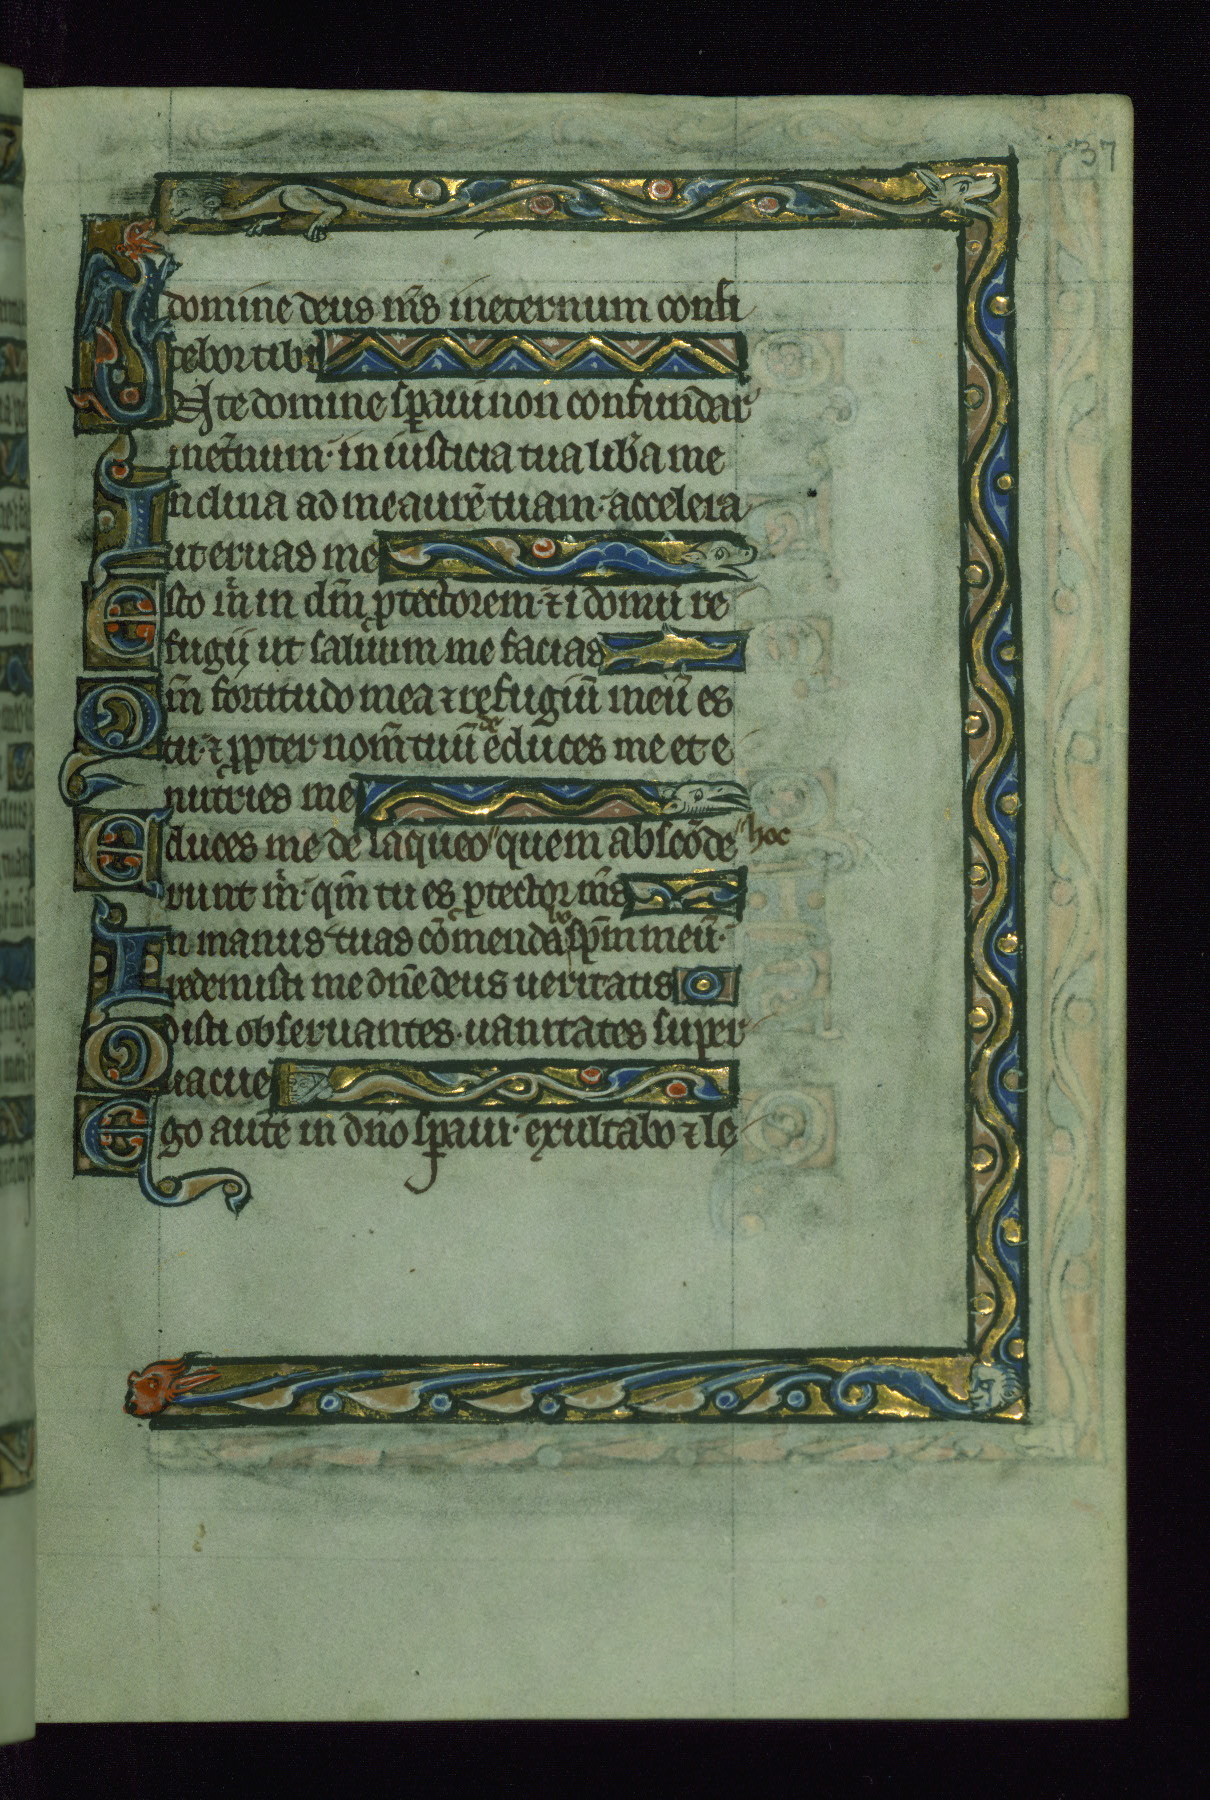 37
domine deus m̄s ineternum confi
tebor tibi
In te domine sp̄aui non confundar
inet̄num· in iusticia tua lib̄a me
Inclina ad me aurē tuam· accelera
ut eruas me
Esto m̄ in dm̄ ꝓtectorem· ⁊ i domū re
fugii ut saluum me facias
Qm̄ fortitudo mea ⁊ refugiū meū es
tu· ⁊ ꝓpter nom̄ tuū deduces me et e
nutries me
Educes me de laqueo quem abscōde hoc
runt m̄· qm̄ tu es ꝓtector m̄s
In manus tuas cōmendabo sp̄m meū·
redemisti me dn̄e deus ueritatis
Odisti obseruantes· uanitates super
uacue
Ego autē in dn̄o sp̄aui· exultabo ⁊ le